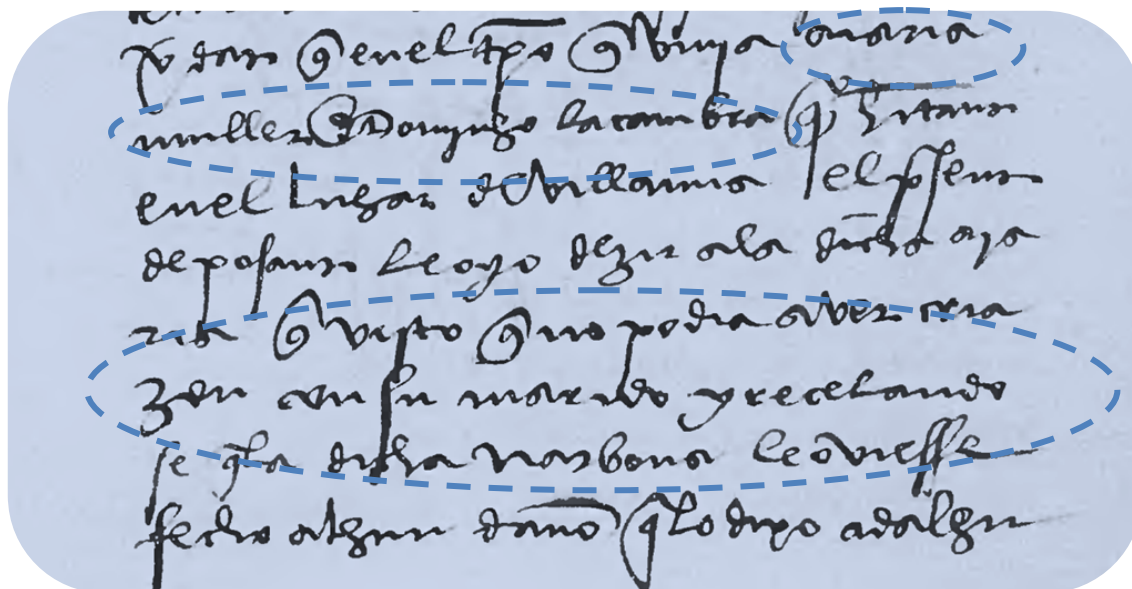 dar q en el tpo q vivia maria
muller de Domingo lacambra q
en el lugar de Villanua el psent
deposant le oyo dezir a la dicha
ria q visto q no podia aver cria
zon con su marido y recelando
se q la dicha narbona le oviesse
fecho algun dano q lo dixo ad algun